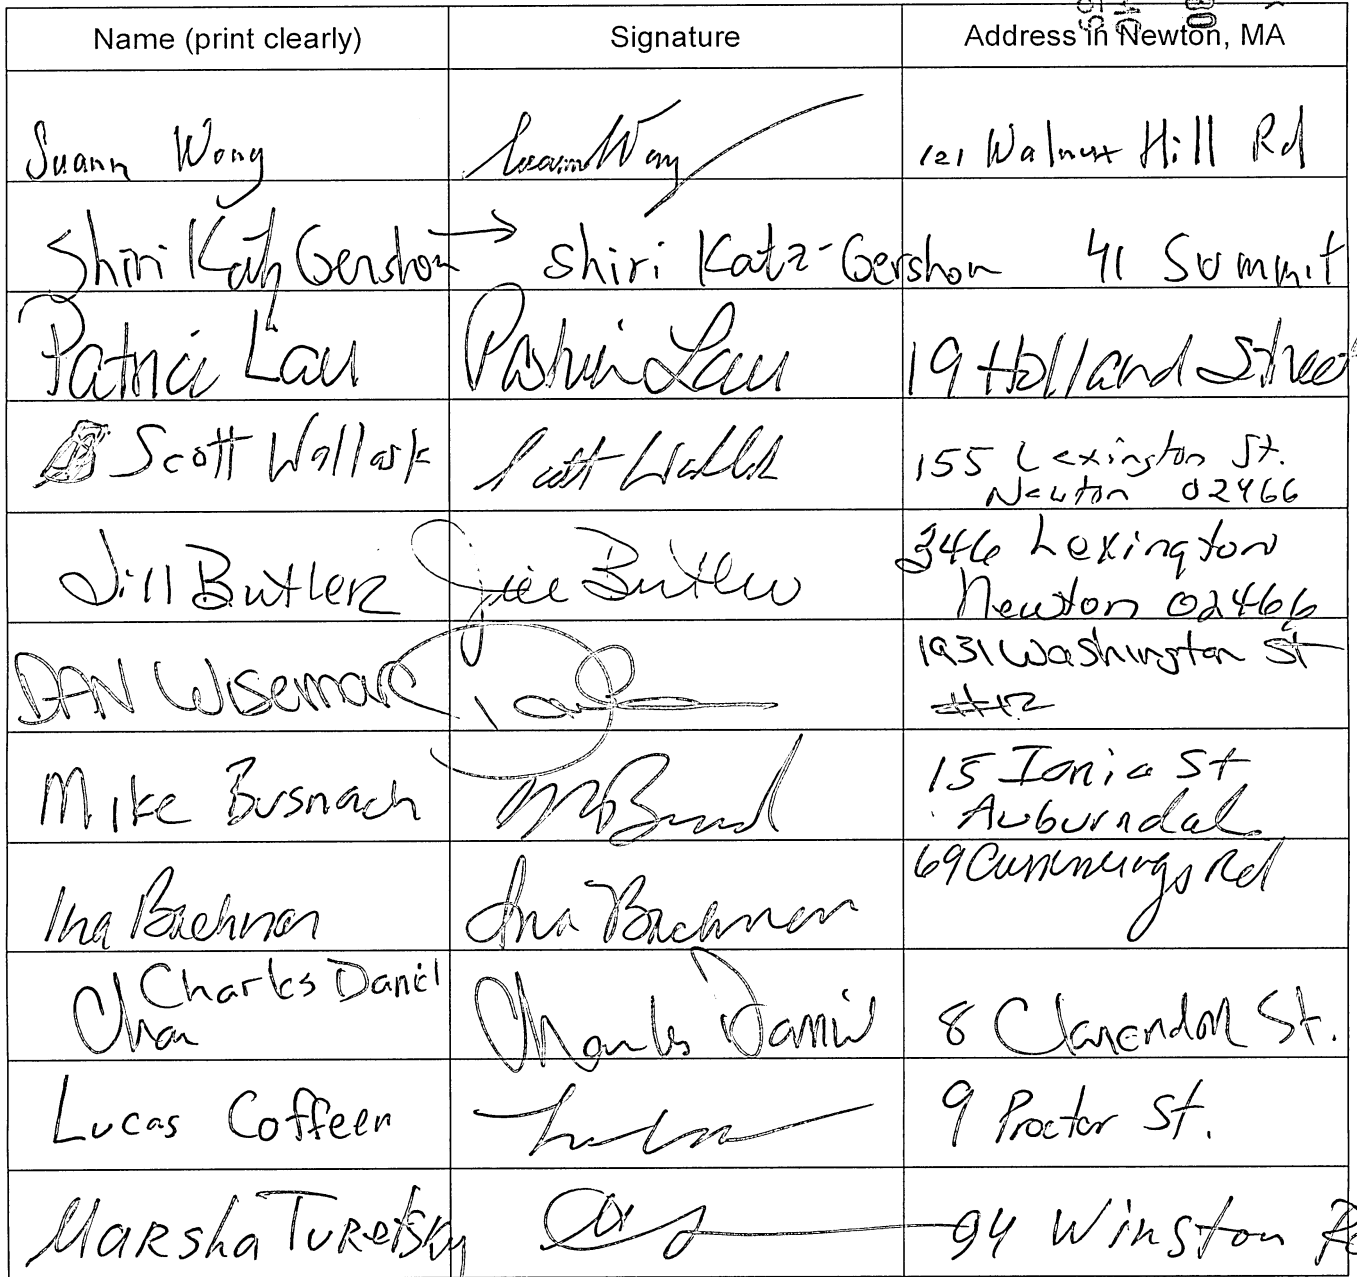 Name (print clearly) Signature Address in Newton, MA
Suann Wong Suann Wong 121 Walnut Hill Rd
Shiri Katz Gershon → Shiri Katz-Gershon 41 Summit
Patrici Lau Patrici Lau 19 Holland Street
Scott Wallask Scott 155 Lexington St.
Newton 02466
Jill Butler Jill Butler 346 Lexington
Newton 02466
DAN Wiseman 1931 Washington St
#12
Mike Busnach 15 Ionia St
Auburndal
Ina Bachman Ina Bachman 69 Cummings Rd
Charles Daniel Charles Daniel 8 Clarendon St.
Lucas Coffeen 9 Proctor St.
Marsha Turetsky 94 Winston